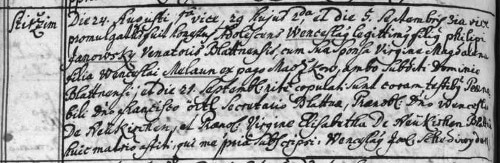 Stitzim
Die 24. Augusti 1ma vice, 29 hujus 2da et die 5. Septembris 3ia vice
promulgatus fuit honestus Adolescens Wenceslaus legittimus filius Philipi
Janowsky Venatoris Blattnensis, cum sua sponsa Virgine Magdalena
filia Wenceslai Melaun ex pago Maczkow, ambo Subditi Dominio
Blattnensi; et die 21. Septembris rite copulati sunt coram testibus
bili dno Francisco Secretario Blattna, Dno Wenceslao
De Neukirchen, et Virgine Elisabetha De Neukirchen
huic matrio astiti, qui me pria subscripsi: Wenceslaus